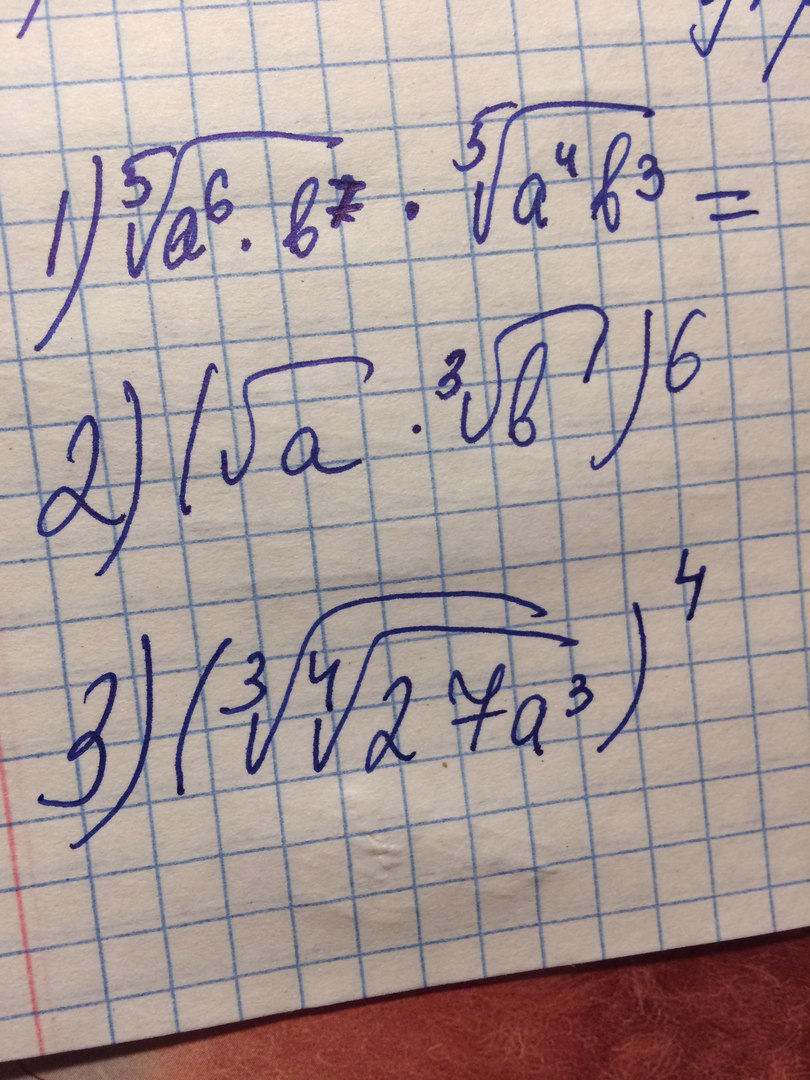 1) ⁵√(a⁶ · b⁷) · ⁵√(a⁴b³) =
2) (√a · ³√b)⁶
3) (³√(⁴√(27a³)))⁴